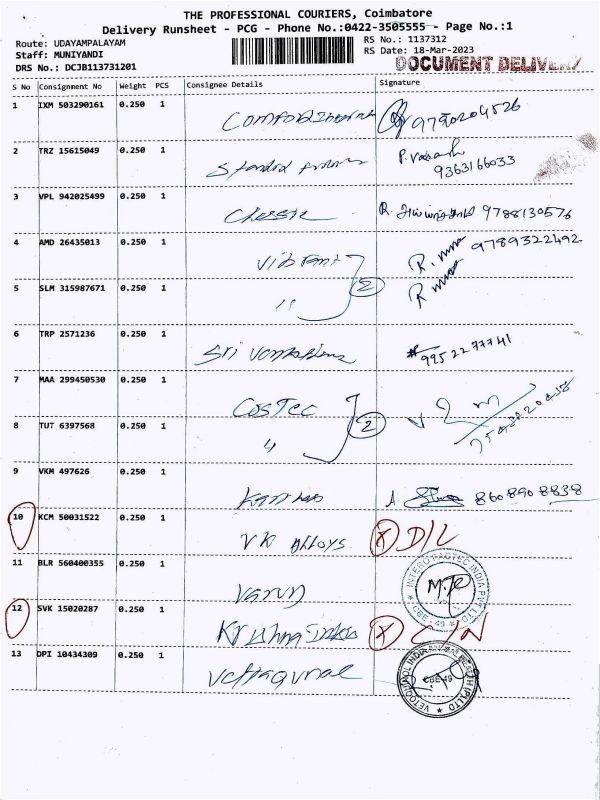 THE PROFESSIONAL COURIERS, Coimbatore
Delivery Runsheet - PCG - Phone No.:0422-3505555 - Page No.:1
Route: UDAYAMPALAYAM
Staff: MUNIYANDI
DRS No.: DCJB113731201
RS No.: 1137312
RS Date: 18-Mar-2023
DOCUMENT DELIVERY
S No Consignment No Weight PCS Consignee Details Signature
1 IXM 503290161 0.250 1
2 TRZ 15615049 0.250 1 Standard 9363166033
3 VPL 942025499 0.250 1 Classic R. 9788130576
4 AMD 26435013 0.250 1 Vibrant R. 9789322492
5 SLM 315987671 0.250 1 " 2 R
6 TRP 2571236 0.250 1 Sri 9952277741
7 MAA 299450530 0.250 1 CosTec
8 TUT 6397568 0.250 1 " 2
9 VKM 497626 0.250 1 8608908838
10 KCM 50031522 0.250 1 VK Alloys X D/L
11 BLR 560400355 0.250 1 Varun
12 SVK 15020287 0.250 1 Krishna X C/N
CBE - 49
13 DPI 10434309 0.250 1 Vetoquinol
CBE-49